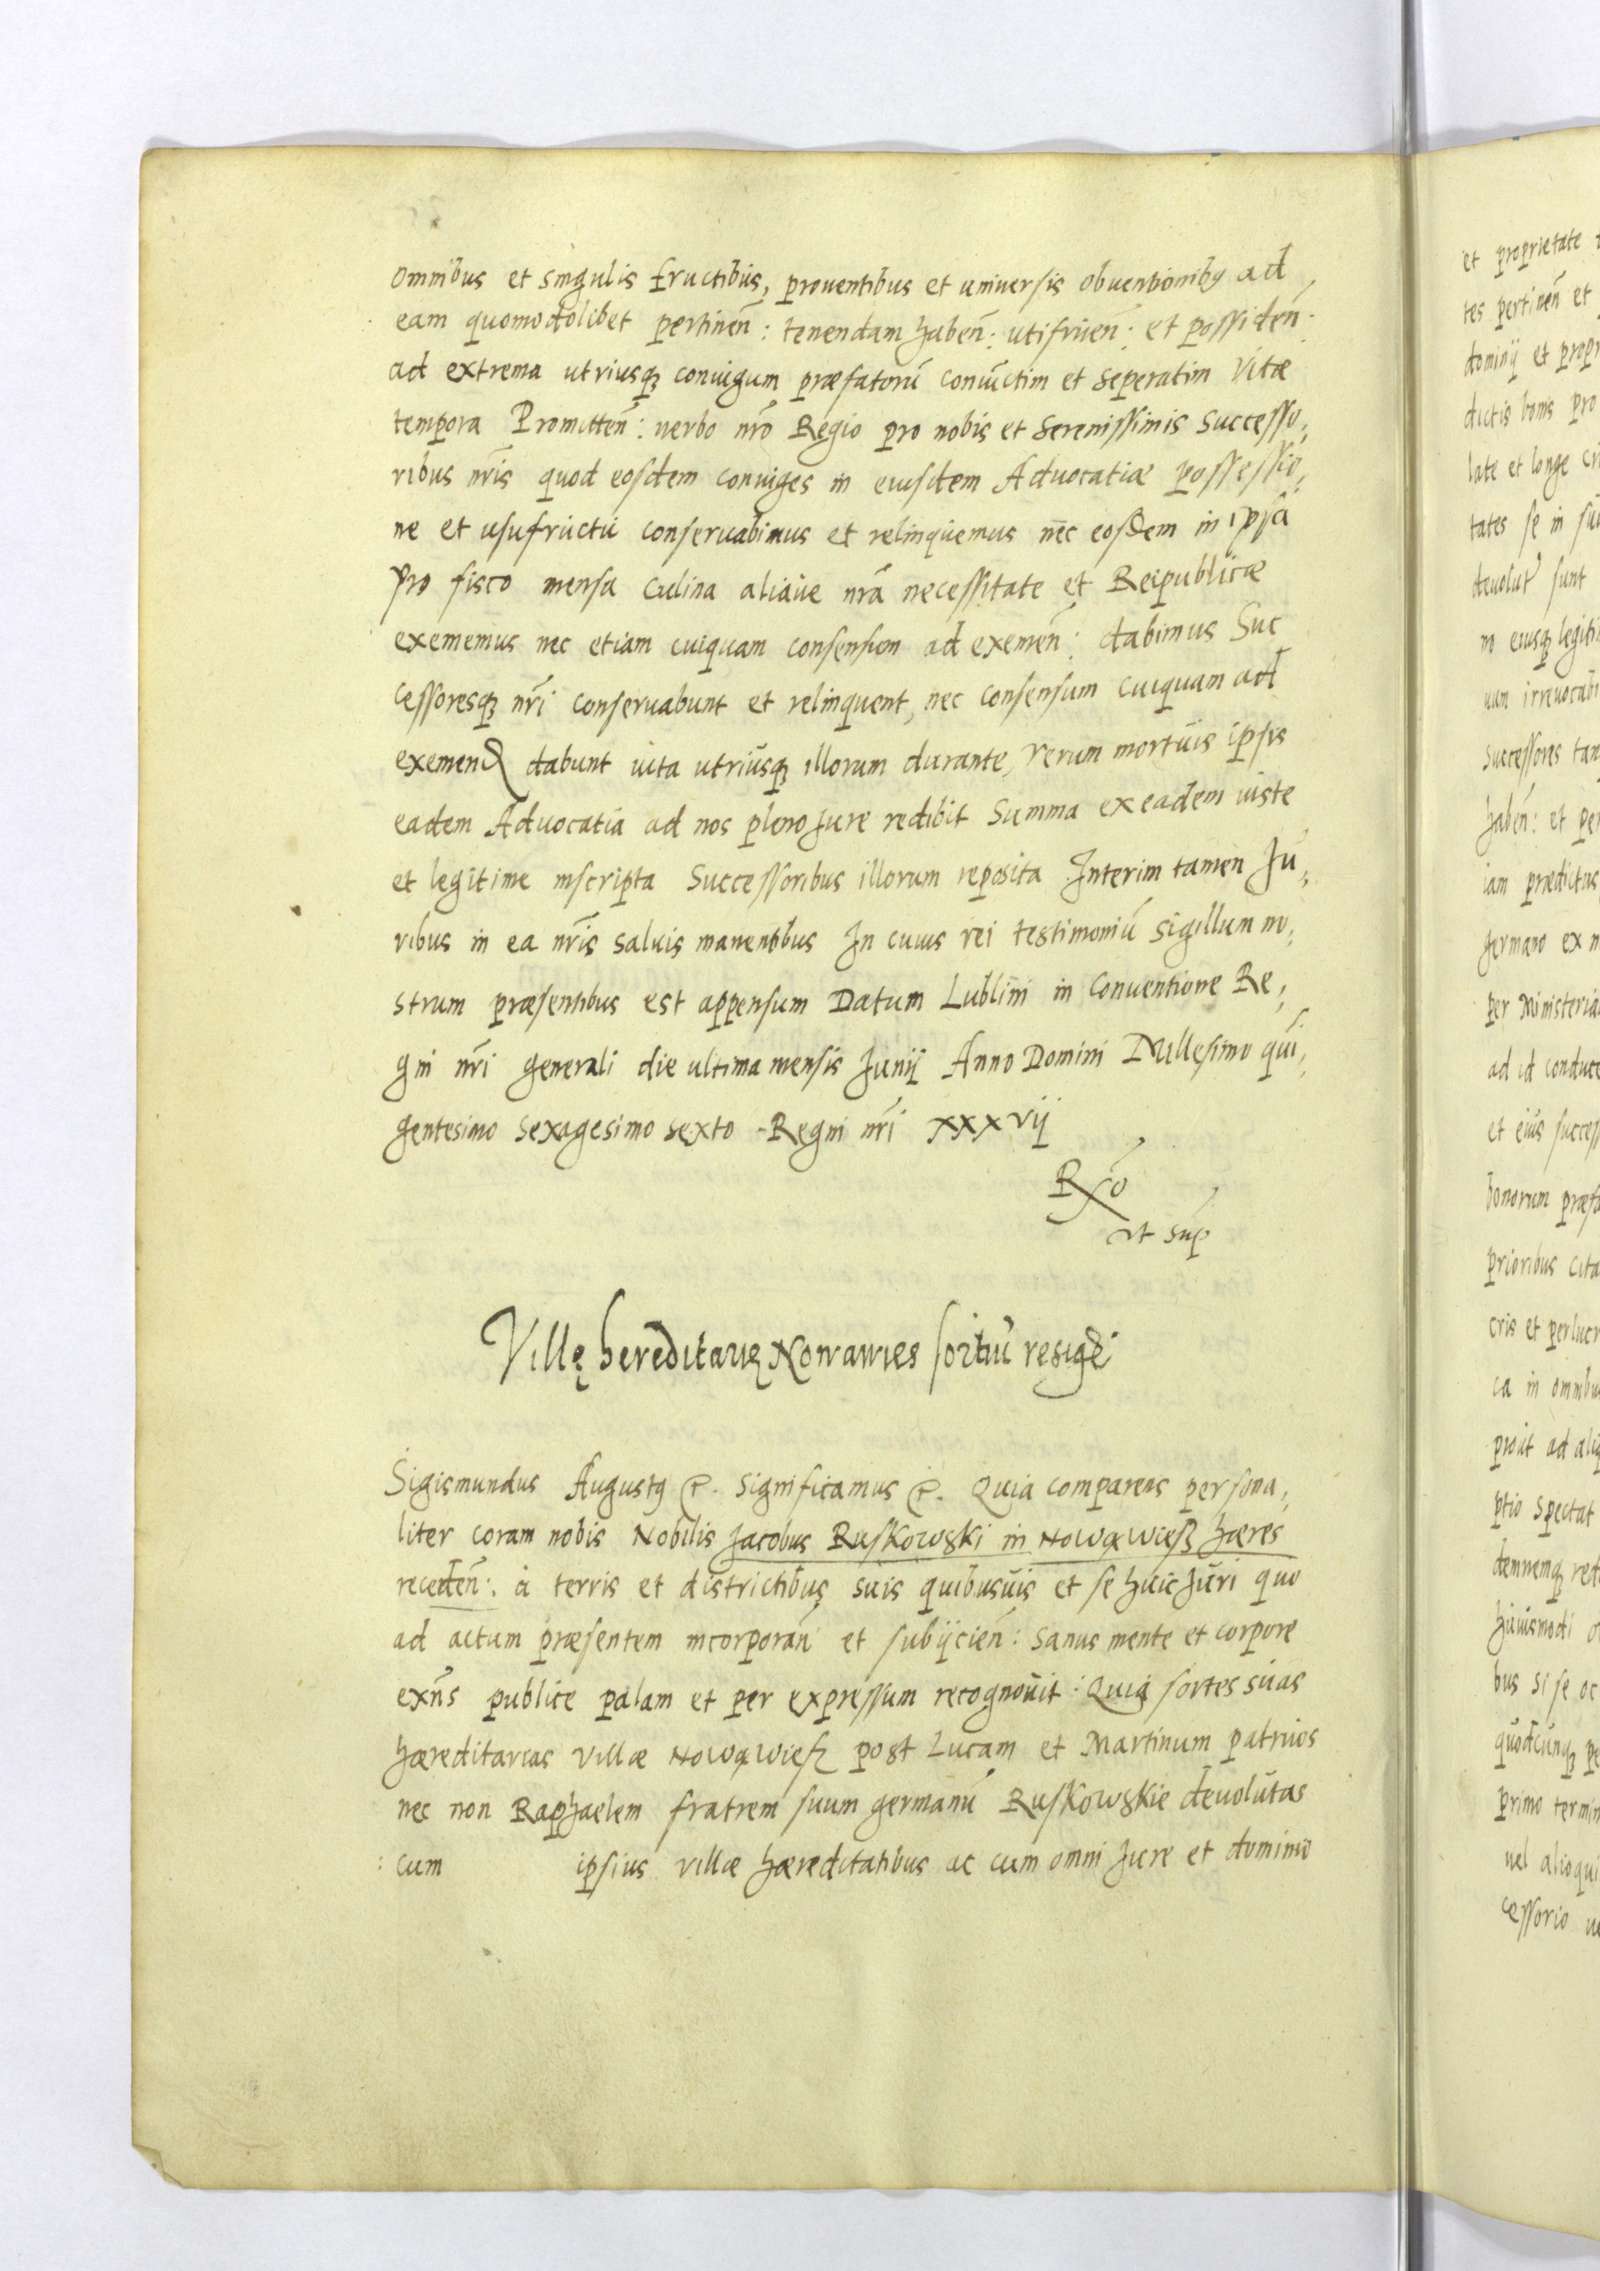 omnibus et singulis fructibus, proventibus et universis obventionibꝯ ad
eam quomodolibet pertineñ: tenendam habeñ: utifrueñ: et possideñ:
ad extrema utriusqꝫ coniugum præfatorũ coniũctim et seperatim vitæ
tempora Promitteñ: verbo nr̃o Regio pro nobis et Serenissimis Successo,
ribus nr̃is quod eosdem coniuges in eiusdem Advocatiæ possessio,
ne et usufructu conservabimus et relinquemus nec eosdem in ipsa
pro fisco mensa culina aliave nr̃a necessitate et Reipublicæ
exememus nec etiam cuiquam consensum ad exemeñ: dabimus Suc
cessoresqꝫ nr̃i conservabunt et relinquent, nec consensum cuiquam ad
exemend dabunt vita utriusqꝫ illorum durante, verum mortuis ipsis
eadem Advocatia ad nos pleno Jure redibit Summa ex eadem iuste
et legitime inscripta Successoribus illorum reposita Interim tamen Ju,
ribus in ea nr̃is salvis manentibus In cuius rei testimoniũ sigillum no,
strum præsentibus est appensum Datum Lublini in Conventione Re,
gni nr̃i generali die ultima mensis Junij Anno Domini Millesimo qui,
gentesimo sexagesimo sexto Regni nr̃i xxxvij
Rẽo
ut sup
Villę hereditarię Nowawies sortiũ resigẽ
Sigismundus Augustꝯ etc. Significamus etc. Quia comparens persona,
liter coram nobis Nobilis Jacobus Ruskowski in Nowąwieß hæres
recedeñ: à terris et districtibus suis quibusvis et se huic Juri quo
ad actum præsentem incorporañ et subijcieñ: sanus mente et corpore
exñs publice palam et per expressum recognovit: Quia sortes suas
hæreditarias villæ Nowąwieß post Lucam et Martinum patruos
nec non Raphaelem fratrem suum germanũ Ruskowskie devolutas
: cum ipsius villæ hæreditatibus ac cum omni Jure et dominio
et proprietate
tes pertineñ et
dominij et propr
dictis bonis pro
late et longe
tates se in
devolut sunt
no eiusqꝫ legiti
irrevocabi
successores tan
habeñ: et per
iam prædictus
germano ex
per Ministeria
ad id conduce
et eius success
bonorum præfa
prioribus cita
cris et perlucr
ca in omnibus
prout ad aliq
ptio spectat
demnemqꝫ red
huiusmodi
bus si se oc
quodcunqꝫ pe
primo termin
vel alioqui
cessorio